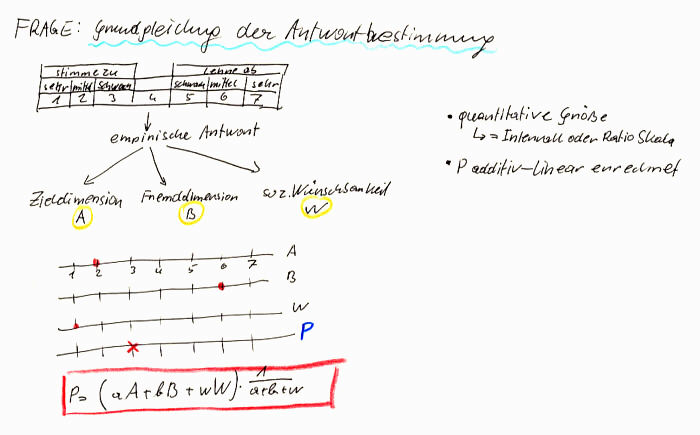 FRAGE: Grundgleichung der Antwortbestimmung
stimme zu lehne ab
sehr mittel schwach schwach mittel sehr
1 2 3 4 5 6 7
empirische Antwort
Zieldimension Fremddimension soz. Wünschbarkeit
A B W
• quantitative Größe
↳ = Intervall oder Ratio Skala
• P additiv-linear errechnet
A
1 2 3 4 5 6 7
B
W
P
P = (aA + bB + wW) · 1/(a+b+w)